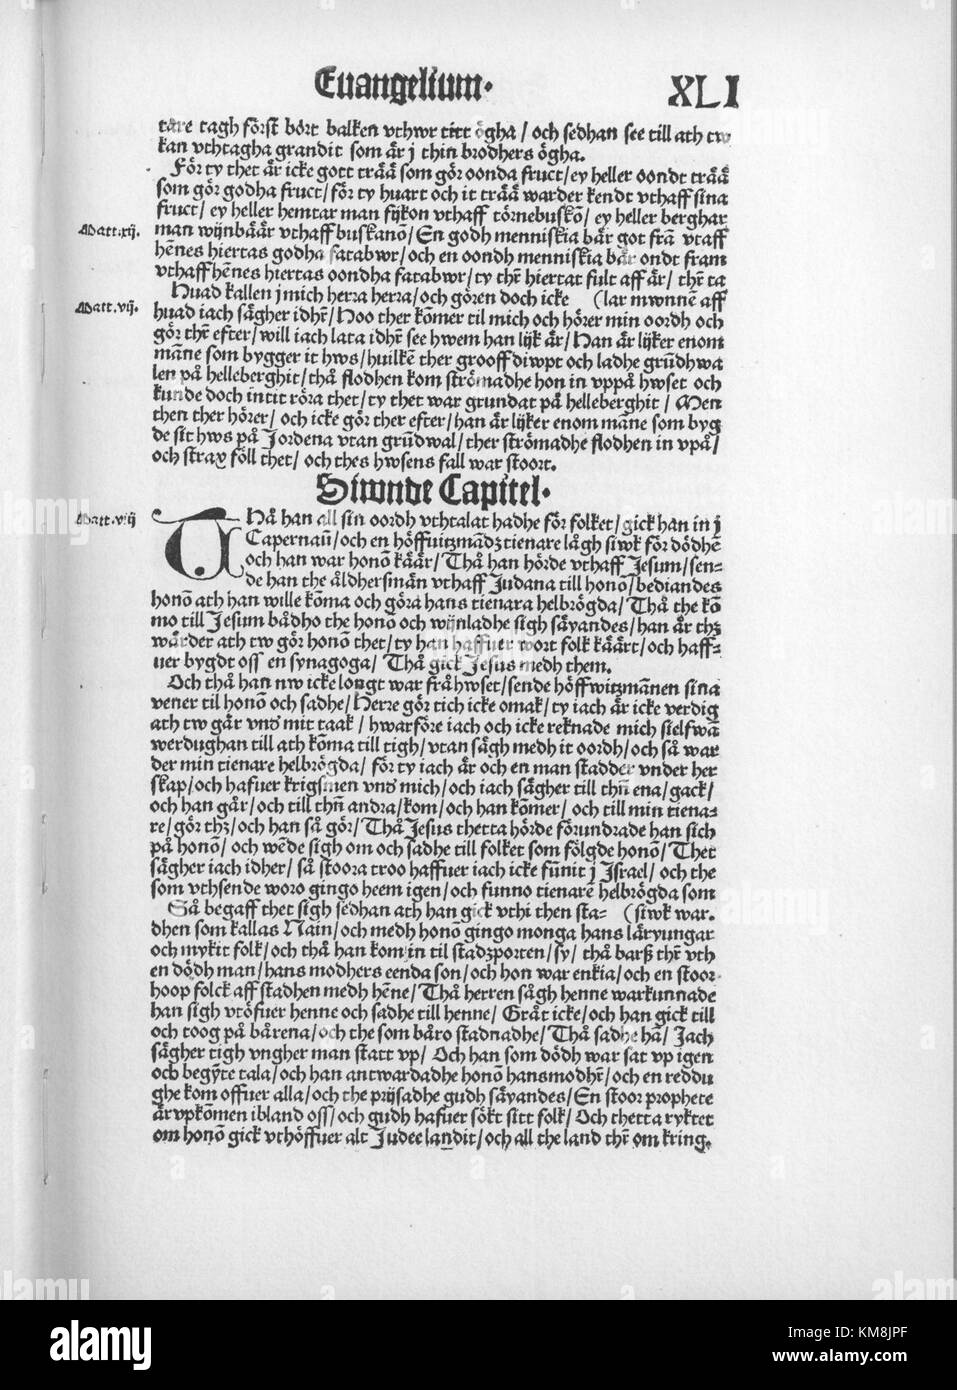 Euangelium. XLI
täre tagh först bort balken vthwr titt ögha / och sedhan see till ath tw
kan vthtagha grandit som är j thin brodhers ögha.
För ty thet är icke gott trää som gör oonda fruct / ey heller oondt trää
som gör godha fruct / för ty huart och it trää warder kendt vthaff sina
fruct / ey heller hemtar man fijkon vthaff törnebuskō / ey heller berghar
Matt.xij. man wijnbäär vthaff buskanō / En godh menniskia bär got frā vtaff
hēnes hiertas godha fatabwr / och en oondh menniskia bär ondt fram
vthaff hēnes hiertas oondha fatabwr / ty thr̄ hiertat fult aff är / thr̄ ta
Huad kallen j mich herra herra / och gören doch icke (lar mwnnen aff
Matt.vij. huad iach sägher idhr̄ / Hoo ther kōmer til mich och hörer min oordh och
gör thr̄ efter / will iach lata idhr̄ see hwem han lijk är / Han är lijker enom
māne som bygger it hws / huilkē ther grooff diwpt och ladhe grūdhwa
len på helleberghit / thå flodhen kom strömadhe hon in vppå hwset och
kunde doch intit röra thet / ty thet war grundat på helleberghit / Men
then ther hörer / och icke gör ther efter / han är lijker enom māne som byg
de sit hws på Jordena vtan grūdwal / ther strömadhe flodhen in vpå /
och strax föll thet / och thes hwsens fall war stoort.
Siwnde Capitel.
Matt.viij THå han all sin oordh vthtalat hadhe för folket / gick han in j
Capernaū / och en höffuitzmādz tienare lågh siwk för dödhē
och han war honō käär / Thå han hörde vthaff Jesum / sen-
de han the åldhersmän vthaff Judana till honō / bediandes
honō ath han wille kōma och göra hans tienara helbrögda / Thå the kō
mo till Jesum bådho the honō och wijnladhe sigh säyandes / han är thz
wärder ath tw gör honō thet / ty han haffuer wort folk käärt / och haff-
uer bygdt oss en synagoga / Thå gick Jesus medh them.
Och thå han nw icke longt war frå hwset / sende höffwitzmānen sina
vener til honō och sadhe / Herre gör tich icke omak / ty iach är icke verdig
ath tw går vnd mit taak / hwarföre iach och icke reknade mich sielfwā
werdughan till ath kōma till tigh / vtan sägh medh it oordh / och så war
der min tienare helbrögda / för ty iach är och en man stadder vnder her
skap / och hafuer krigsmen vnd mich / och iach sägher till thn̄ ena / gack /
och han går / och till thn̄ andra / kom / och han kōmer / och till min tiena-
re / gör thz / och han så gör / Thå Jesus thetta hörde förundrade han sich
på honō / och wēde sigh om och sadhe till folket som fölgde honō / Thet
sägher iach idher / så stoora troo haffuer iach icke fūnit j Israel / och the
som vthsende woro gingo heem igen / och funno tienarē helbrögda som
Så begaff thet sigh sedhan ath han gick vthi then sta- (siwk war.
dhen som kallas Nain / och medh honō gingo monga hans läryungar
och mykit folk / och thå han kom in til stadzporten / sy / thå barß thr̄ vth
en dödh man / hans modhers eenda son / och hon war enkia / och en stoor
hoop folck aff stadhen medh hēne / Thå herren sågh henne warkunnade
han sigh vtöfuer henne och sadhe till henne / Gråt icke / och han gick till
och toog på bårena / och the som båro stadnadhe / Thå sadhe hā / Jach
sägher tigh vngher man statt vp / Och han som dödh war sat vp igen
och begȳte tala / och han antwardadhe honō hans modhr̄ / och en reddu
ghe kom offuer alla / och the prijsadhe gudh säyandes / En stoor prophete
är vpkōmen ibland oss / och gudh hafuer sökt sitt folk / Och thetta ryktet
om honō gick vthöffuer alt Judee landit / och all the land thr̄ om kring.
alamy
Image ID: KM8JPF
www.alamy.com